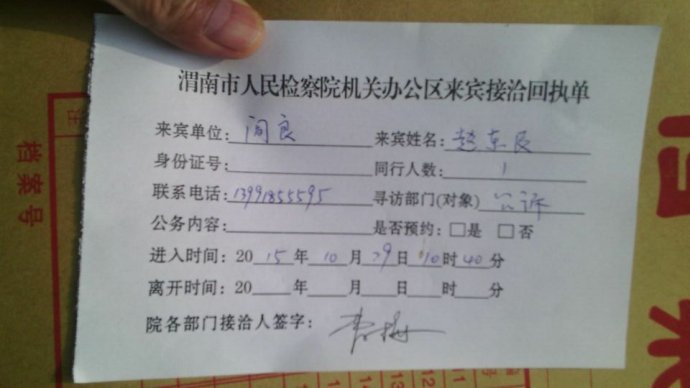 渭南市人民检察院机关办公区来宾接洽回执单
来宾单位:阎良 来宾姓名:赵东民
身份证号: 同行人数:1
联系电话:13991855595 寻访部门(对象)公诉
公务内容: 是否预约:□是 □否
进入时间:2015年10月29日10时40分
离开时间:20 年 月 日 时 分
院各部门接洽人签字:
档案号
注